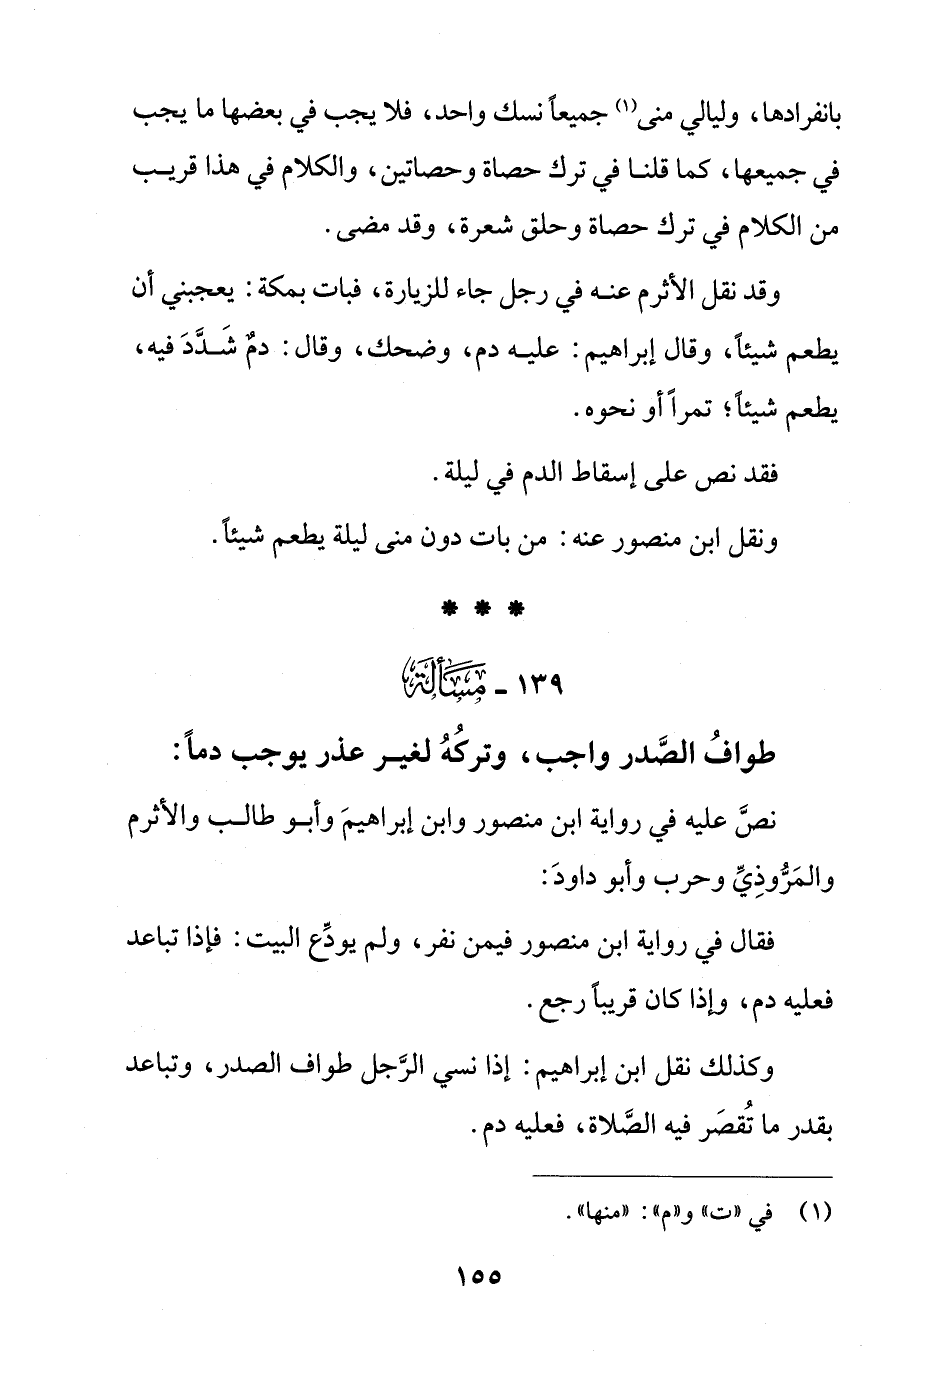 بانفرادها، وليالي منى(١) جميعاً نسك واحد، فلا يجب في بعضها ما يجب
في جميعها، كما قلنا في ترك حصاة وحصاتين، والكلام في هذا قريب
من الكلام في ترك حصاة وحلق شعرة، وقد مضى.
وقد نقل الأثرم عنه في رجل جاء للزيارة، فبات بمكة: يعجبني أن
يطعم شيئاً، وقال إبراهيم: عليه دم، وضحك، وقال: دمٌ شَدَّدَ فيه،
يطعم شيئاً؛ تمراً أو نحوه.
فقد نص على إسقاط الدم في ليلة.
ونقل ابن منصور عنه: من بات دون منى ليلة يطعم شيئاً.
* * *
١٣٩ - مَسْأَلَة
طوافُ الصَّدر واجب، وتركُهُ لغير عذر يوجب دماً:
نصَّ عليه في رواية ابن منصور وابن إبراهيمَ وأبو طالب والأثرم
والمَرُّوذِيِّ وحرب وأبو داودَ:
فقال في رواية ابن منصور فيمن نفر، ولم يودِّع البيت: فإذا تباعد
فعليه دم، وإذا كان قريباً رجع.
وكذلك نقل ابن إبراهيم: إذا نسي الرَّجل طواف الصدر، وتباعد
بقدر ما تُقصَر فيه الصَّلاة، فعليه دم.
(١) في «ت» و«م»: «منها».
١٥٥